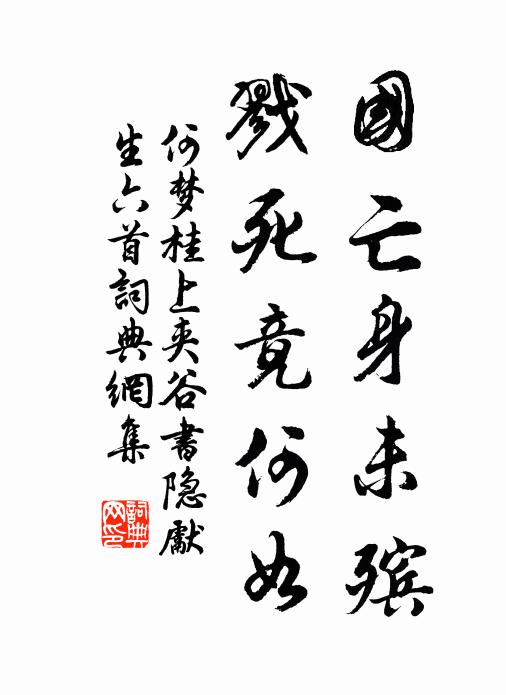 國亡身未殯
戮死竟何如
何梦桂上夾谷書隐獻
生六首詞典網集
詞典网印